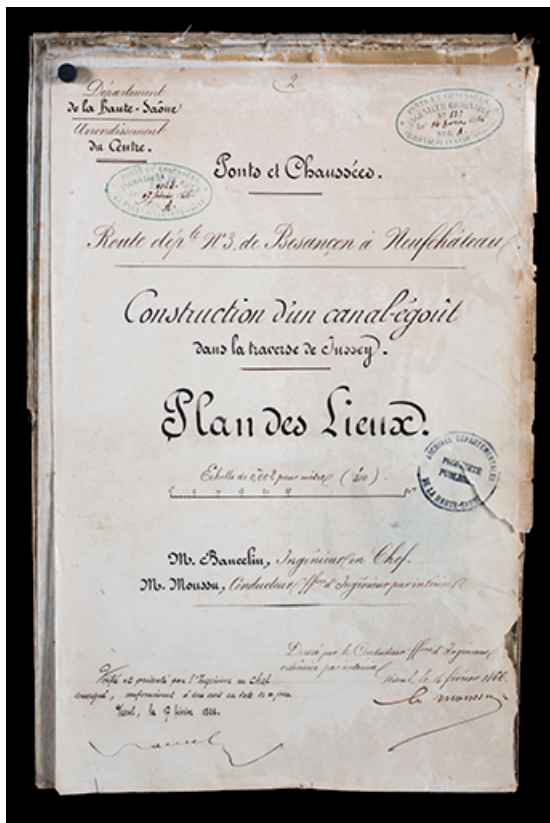 2
Département
de la Haute-Saône
Arrondissement
du Centre.
PONTS ET CHAUSSÉES
INGÉNIEUR ORDINAIRE
Nº 137
Le 16 février
SER. A.
PONTS ET CHAUSSÉES
17 février
A.
Ponts et Chaussées.
Route dép.le Nº3, de Besançon à Neufchâteau.
Construction d'un canal-égoût
dans la traverse de Jussey.
Plan des Lieux.
Echelle de 0,002 pour mètre
ARCHIVES DÉPARTEMENTALES
PROPRIÉTÉ
PUBLIQUE
DE LA HAUTE-SAÔNE
M. Baucelin, Ingénieur en Chef.
M. Moussu, Conducteur ff.ons d'Ingénieur par intérim
Dressé par le Conducteur ff.ons d'Ingénieur
ordinaire par intérim
Vesoul, le 16 février 1866.
Vérifié et présenté par l'Ingénieur en Chef
soussigné, conformément à son avis en date de ce jour.
Vesoul, le 17 février 1866.